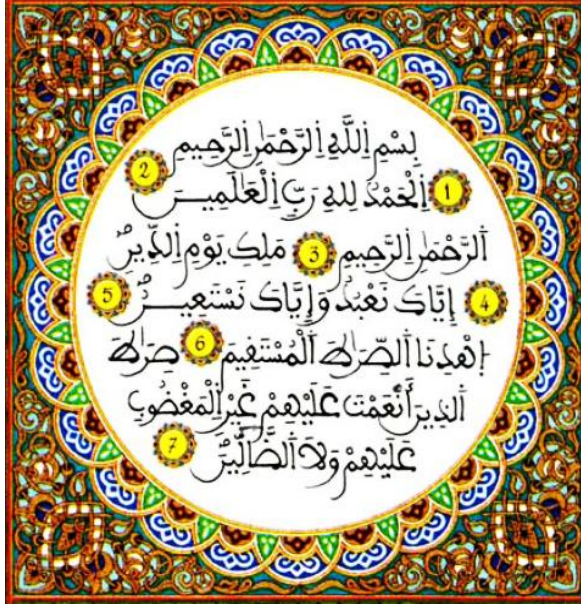 بِسْمِ اِ۬للَّهِ اِ۬لرَّحْمَٰنِ اِ۬لرَّحِيمِ
1 اِ۬لْحَمْدُ لِلهِ رَبِّ اِ۬لْعَٰلَمِينَ 2
اَ۬لرَّحْمَٰنِ اِ۬لرَّحِيمِ 3 مَلِكِ يَوْمِ اِ۬لدِّينِ
4 إِيَّاكَ نَعْبُدُ وَإِيَّاكَ نَسْتَعِينُ 5
اِ۪هْدِنَا اَ۬لصِّرَٰطَ اَ۬لْمُسْتَفِيمَ 6 صِرَٰطَ
اَ۬لذِينَ أَنْعَمْتَ عَلَيْهِمْ غَيْرِ اِ۬لْمَغْضُوبِ
عَلَيْهِمْ وَلَا اَ۬لضَّآلِّينَ 7